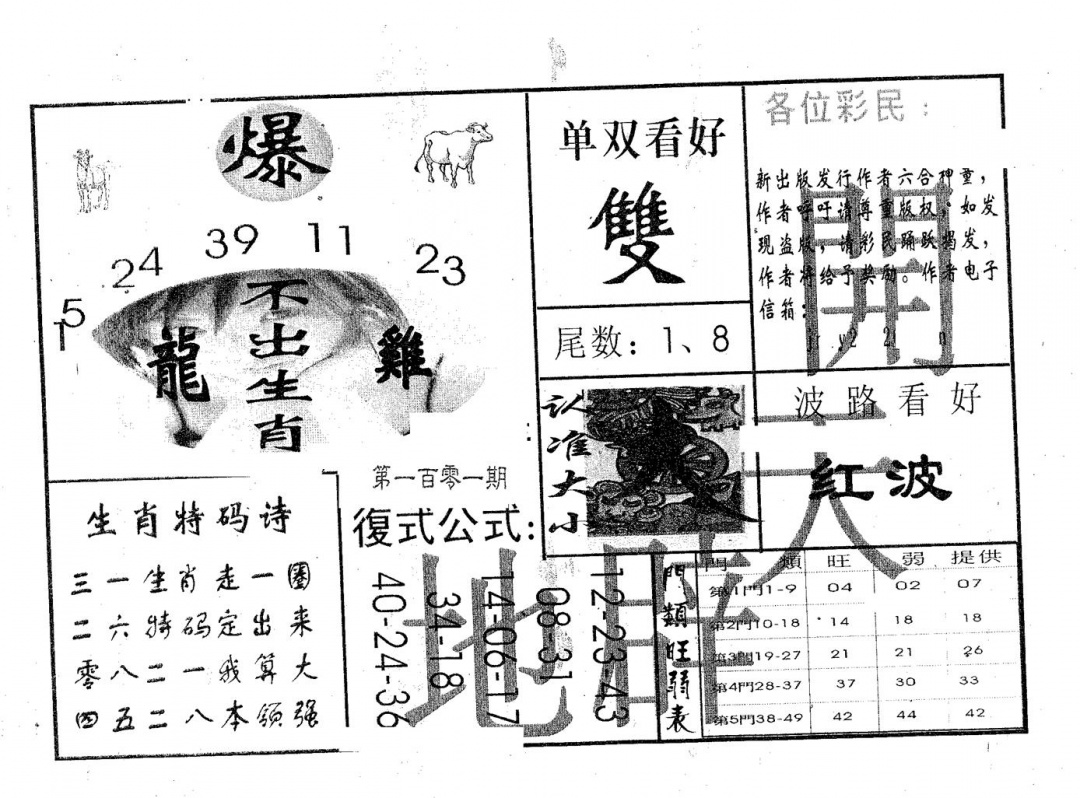 爆
15
24
39
11
23
不出生肖
龍
雞
单双看好
雙
尾数：1、8
各位彩民：
新出版发行作者六合神童，
作者呼吁请尊重版权，如发
现盗版，请彩民踊跃揭发，
作者将给予奖励。作者电子
信箱：
開
波路看好
红波
认准大小
大
第一百零一期
復式公式：
40-24-36
34-18
14-06-17
08-31
12-23-43
地
生肖特码诗
三一生肖走一圈
二六特码定出来
零八二一我算大
四五二八本领强
門類旺弱表
門類 旺 弱 提供
第1門1-9 04 02 07
第2門10-18 14 18 18
第3門19-27 21 21 26
第4門28-37 37 30 33
第5門38-49 42 44 42